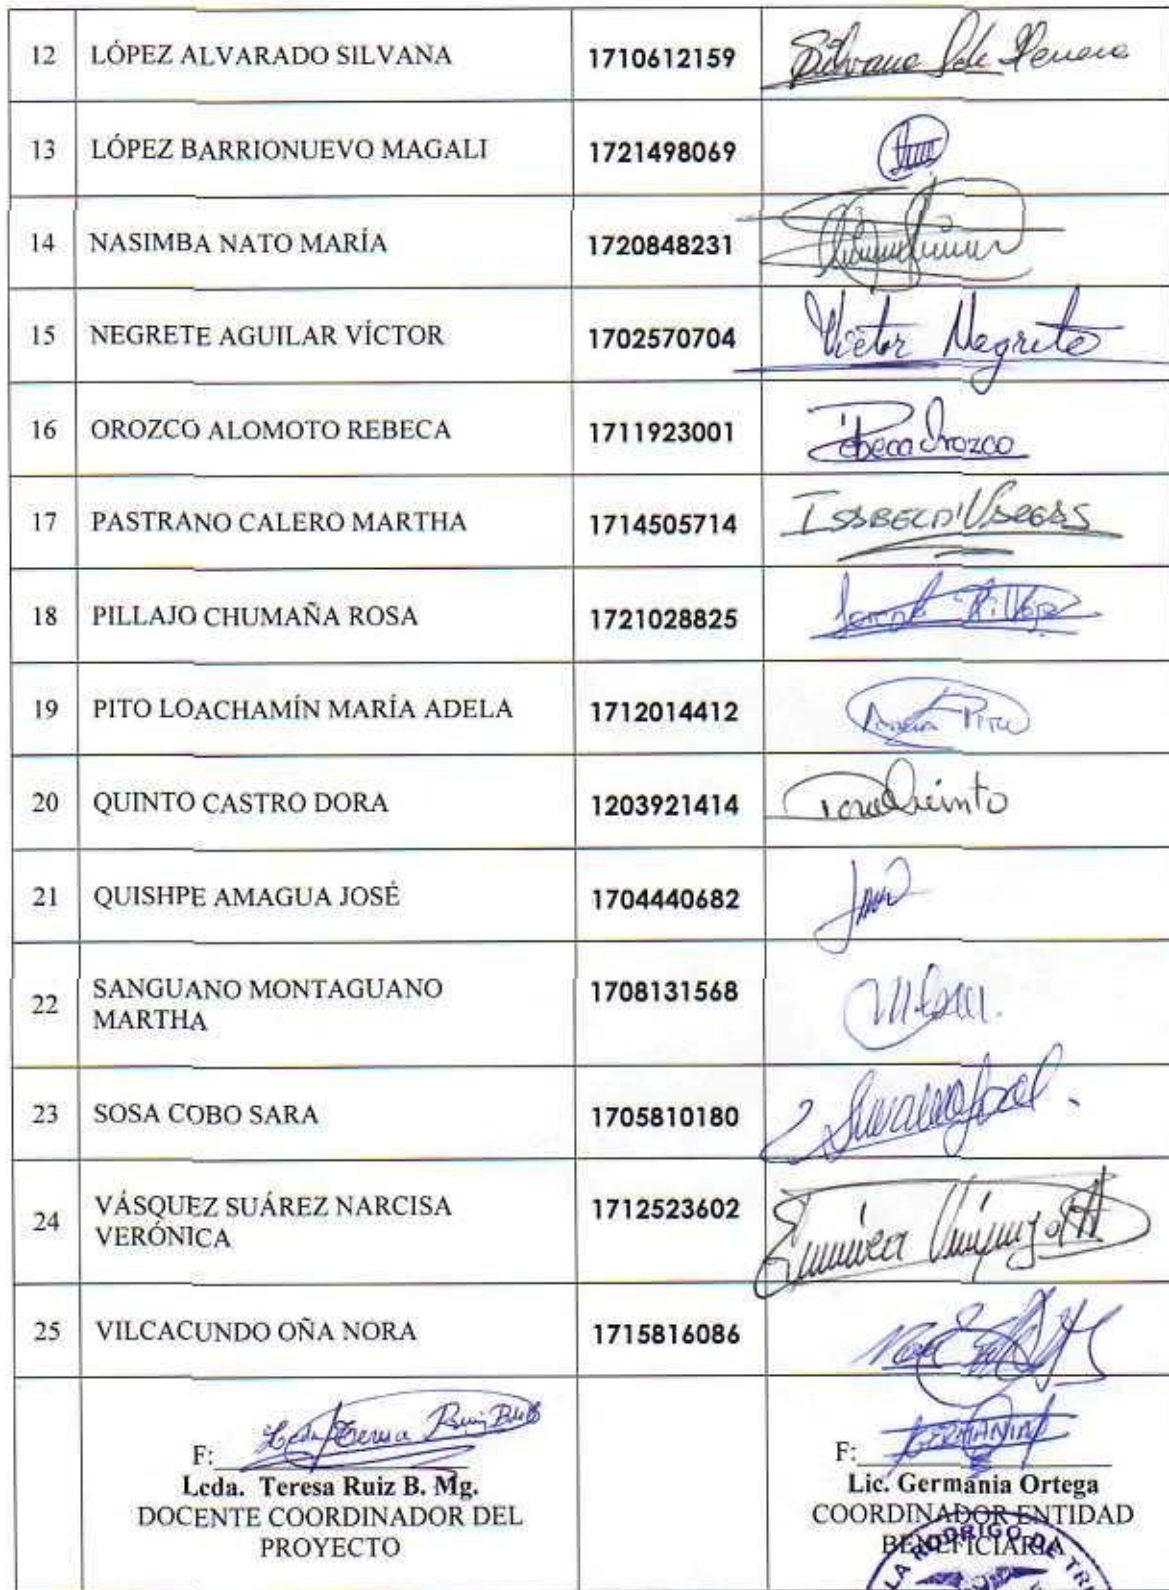 12 LÓPEZ ALVARADO SILVANA 1710612159 Silvana
13 LÓPEZ BARRIONUEVO MAGALI 1721498069
14 NASIMBA NATO MARÍA 1720848231
15 NEGRETE AGUILAR VÍCTOR 1702570704 Victor Negrete
16 OROZCO ALOMOTO REBECA 1711923001 Rebeca Orozco
17 PASTRANO CALERO MARTHA 1714505714
18 PILLAJO CHUMAÑA ROSA 1721028825
19 PITO LOACHAMÍN MARÍA ADELA 1712014412 Pito
20 QUINTO CASTRO DORA 1203921414 Dora Quinto
21 QUISHPE AMAGUA JOSÉ 1704440682
22 SANGUANO MONTAGUANO 1708131568
MARTHA
23 SOSA COBO SARA 1705810180
24 VÁSQUEZ SUÁREZ NARCISA 1712523602
VERÓNICA
25 VILCACUNDO OÑA NORA 1715816086
F: Lcda Teresa Ruiz F: GERMANIA
Lcda. Teresa Ruiz B. Mg. Lic. Germania Ortega
DOCENTE COORDINADOR DEL COORDINADOR ENTIDAD
PROYECTO BENEFICIARIA
LA RODRIGO DE TR